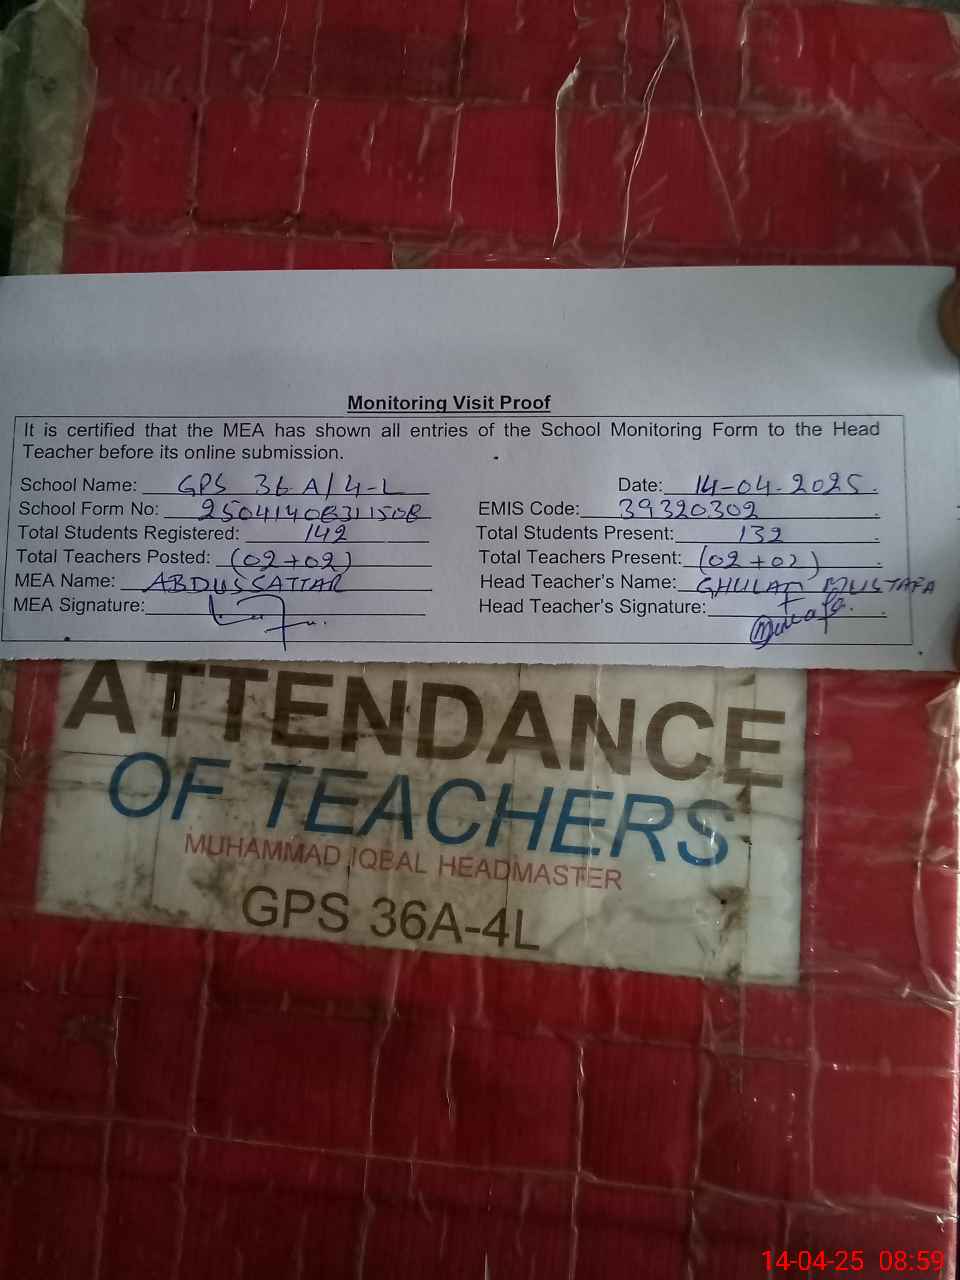 Monitoring Visit Proof
It is certified that the MEA has shown all entries of the School Monitoring Form to the Head
Teacher before its online submission.
School Name: GPS 36 A/4-L Date: 14-04-2025
School Form No: EMIS Code: 39320302
Total Students Registered: 142 Total Students Present: 132
Total Teachers Posted: (02+02) Total Teachers Present: (02+02)
MEA Name: ABDUSSATTAR Head Teacher's Name: GHULAM MUSTAFA
MEA Signature: Head Teacher's Signature:
ATTENDANCE
OF TEACHERS
MUHAMMAD IQBAL HEADMASTER
GPS 36A-4L
14-04-25 08:59